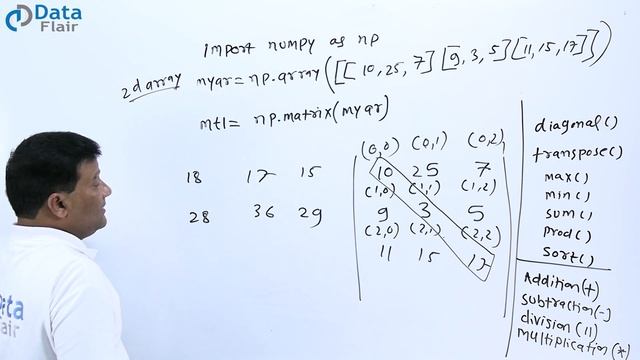 Data
Flair
import numpy as np
2d array myar = np.array([[10, 25, 7] [9, 3, 5] [11, 15, 17]])
mt1 = np.matrix(myar)
(0,0) (0,1) (0,2)
18 17 15 10 25 7
(1,0) (1,1) (1,2)
28 36 29 9 3 5
(2,0) (2,1) (2,2)
11 15 17
diagonal()
transpose()
max()
min()
sum()
prod()
sort()
Addition(+)
subtraction(-)
division(//)
multiplication(*)